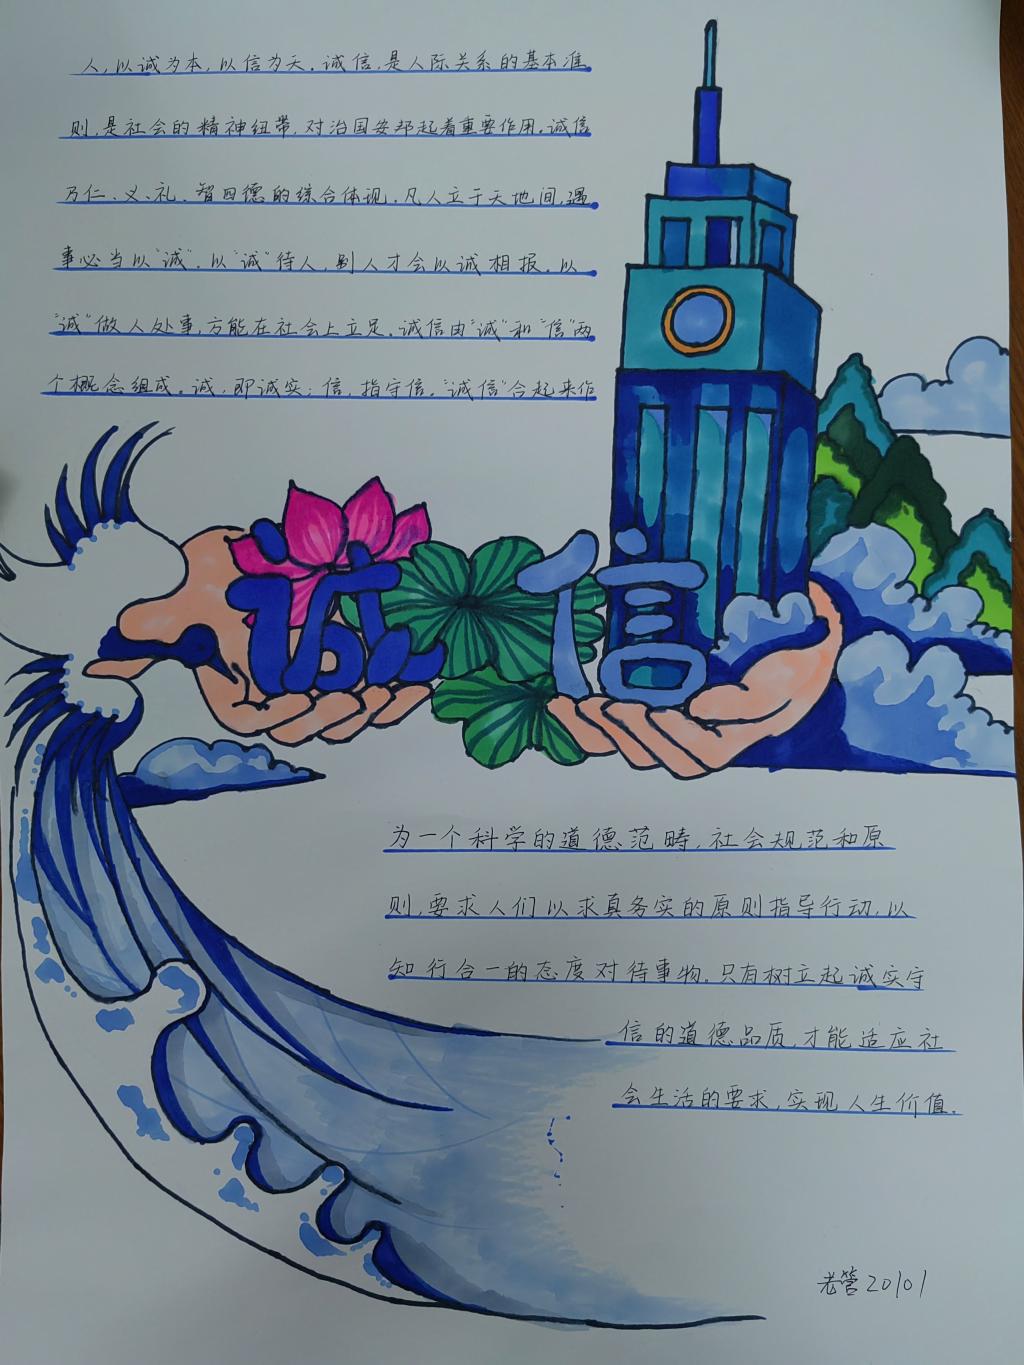 人,以诚为本,以信为天。诚信,是人际关系的基本准
则,是社会的精神纽带,对治国安邦起着重要作用。诚信
乃仁、义、礼、智四德的综合体现。凡人立于天地间,遇
事必当以“诚”。以“诚”待人,别人才会以诚相报。以
“诚”做人处事,方能在社会上立足。诚信由“诚”和“信”两
个概念组成。诚,即诚实;信,指守信。“诚信”合起来作
诚信
为一个科学的道德范畴,社会规范和原
则,要求人们以求真务实的原则指导行动,以
知行合一的态度对待事物。只有树立起诚实守
信的道德品质,才能适应社
会生活的要求,实现人生价值。
老管20101